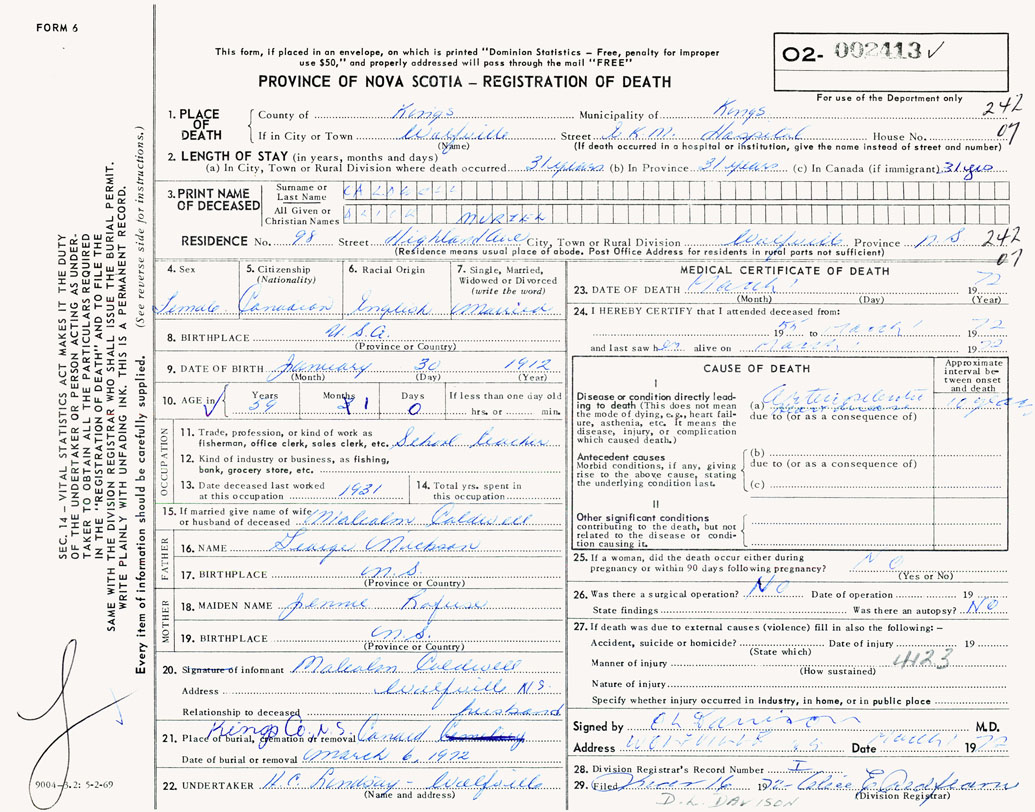 FORM 6
This form, if placed in an envelope, on which is printed "Dominion Statistics – Free, penalty for improper
use $50," and properly addressed will pass through the mail "FREE"
PROVINCE OF NOVA SCOTIA – REGISTRATION OF DEATH
02- 002413 ✓
For use of the Department only
242
07
1. PLACE OF DEATH
County of Kings Municipality of Kings
If in City or Town Wolfville Street E.K.M. Hospital House No.
(Name) (If death occurred in a hospital or institution, give the name instead of street and number)
2. LENGTH OF STAY (in years, months and days)
(a) In City, Town or Rural Division where death occurred 31 years (b) In Province 31 years (c) In Canada (if immigrant) 31 yrs
3. PRINT NAME OF DECEASED
Surname or Last Name CALDWELL
All Given or Christian Names ALICE MURIEL
RESIDENCE No. 98 Street Highland Ave City, Town or Rural Division Wolfville Province N S
(Residence means usual place of abode. Post Office Address for residents in rural parts not sufficient)
242
07
4. Sex
Female
5. Citizenship
(Nationality)
Canadian
6. Racial Origin
English
7. Single, Married,
Widowed or Divorced
(write the word)
Married
8. BIRTHPLACE U.S.A.
(Province or Country)
9. DATE OF BIRTH January 30 1912
(Month) (Day) (Year)
10. AGE in Years Months Days If less than one day old
✓ 59 1 0 hrs. or min.
OCCUPATION
11. Trade, profession, or kind of work as
fisherman, office clerk, sales clerk, etc. School teacher
12. Kind of industry or business, as fishing,
bank, grocery store, etc.
13. Date deceased last worked
at this occupation 1931
14. Total yrs. spent in
this occupation
15. If married give name of wife
or husband of deceased Malcolm Caldwell
FATHER
16. NAME George
17. BIRTHPLACE N.S.
(Province or Country)
MOTHER
18. MAIDEN NAME Jennie Rafuse
19. BIRTHPLACE N.S.
(Province or Country)
20. Signature of informant Malcolm Caldwell
Address Wolfville N.S.
Relationship to deceased husband
Kings Co. N.S.
21. Place of burial, cremation or removal Canard Cemetery
Date of burial or removal March 6, 1972
22. UNDERTAKER H.C. Lindsay – Wolfville
(Name and address)
MEDICAL CERTIFICATE OF DEATH
23. DATE OF DEATH March 1 1972
(Month) (Day) (Year)
24. I HEREBY CERTIFY that I attended deceased from:
19 to March 1 1972
and last saw her alive on March 1 1972
CAUSE OF DEATH
Approximate
interval be-
tween onset
and death
I
Disease or condition directly lead-
ing to death (This does not mean
the mode of dying, e.g., heart fail-
ure, asthenia, etc. It means the
disease, injury, or complication
which caused death.)
(a) heart disease 10 years
due to (or as a consequence of)
Antecedent causes
Morbid conditions, if any, giving
rise to the above cause, stating
the underlying condition last.
(b)
due to (or as a consequence of)
(c)
II
Other significant conditions
contributing to the death, but not
related to the disease or condi-
tion causing it.
25. If a woman, did the death occur either during
pregnancy or within 90 days following pregnancy? NO
(Yes or No)
26. Was there a surgical operation? NO Date of operation 19
State findings Was there an autopsy? NO
27. If death was due to external causes (violence) fill in also the following: –
Accident, suicide or homicide? Date of injury 19
(State which)
Manner of injury 4123
(How sustained)
Nature of injury
Specify whether injury occurred in industry, in home, or in public place
Signed by M.D.
Address Wolfville N.S. Date March 1 1972
28. Division Registrar's Record Number I
29. Filed Mar 16 1972
(Division Registrar)
D.L. DAVISON
SEC. 14 – VITAL STATISTICS ACT MAKES IT THE DUTY
OF THE UNDERTAKER OR PERSON ACTING AS UNDER-
TAKER TO OBTAIN ALL THE PARTICULARS REQUIRED
IN THE "REGISTRATION OF DEATH" AND TO FILE THE
SAME WITH THE DIVISION REGISTRAR WHO SHALL ISSUE THE BURIAL PERMIT.
WRITE PLAINLY WITH UNFADING INK. THIS IS A PERMANENT RECORD.
Every item of information should be carefully supplied. (See reverse side for instructions.)
9004-3.2: 5-2-69